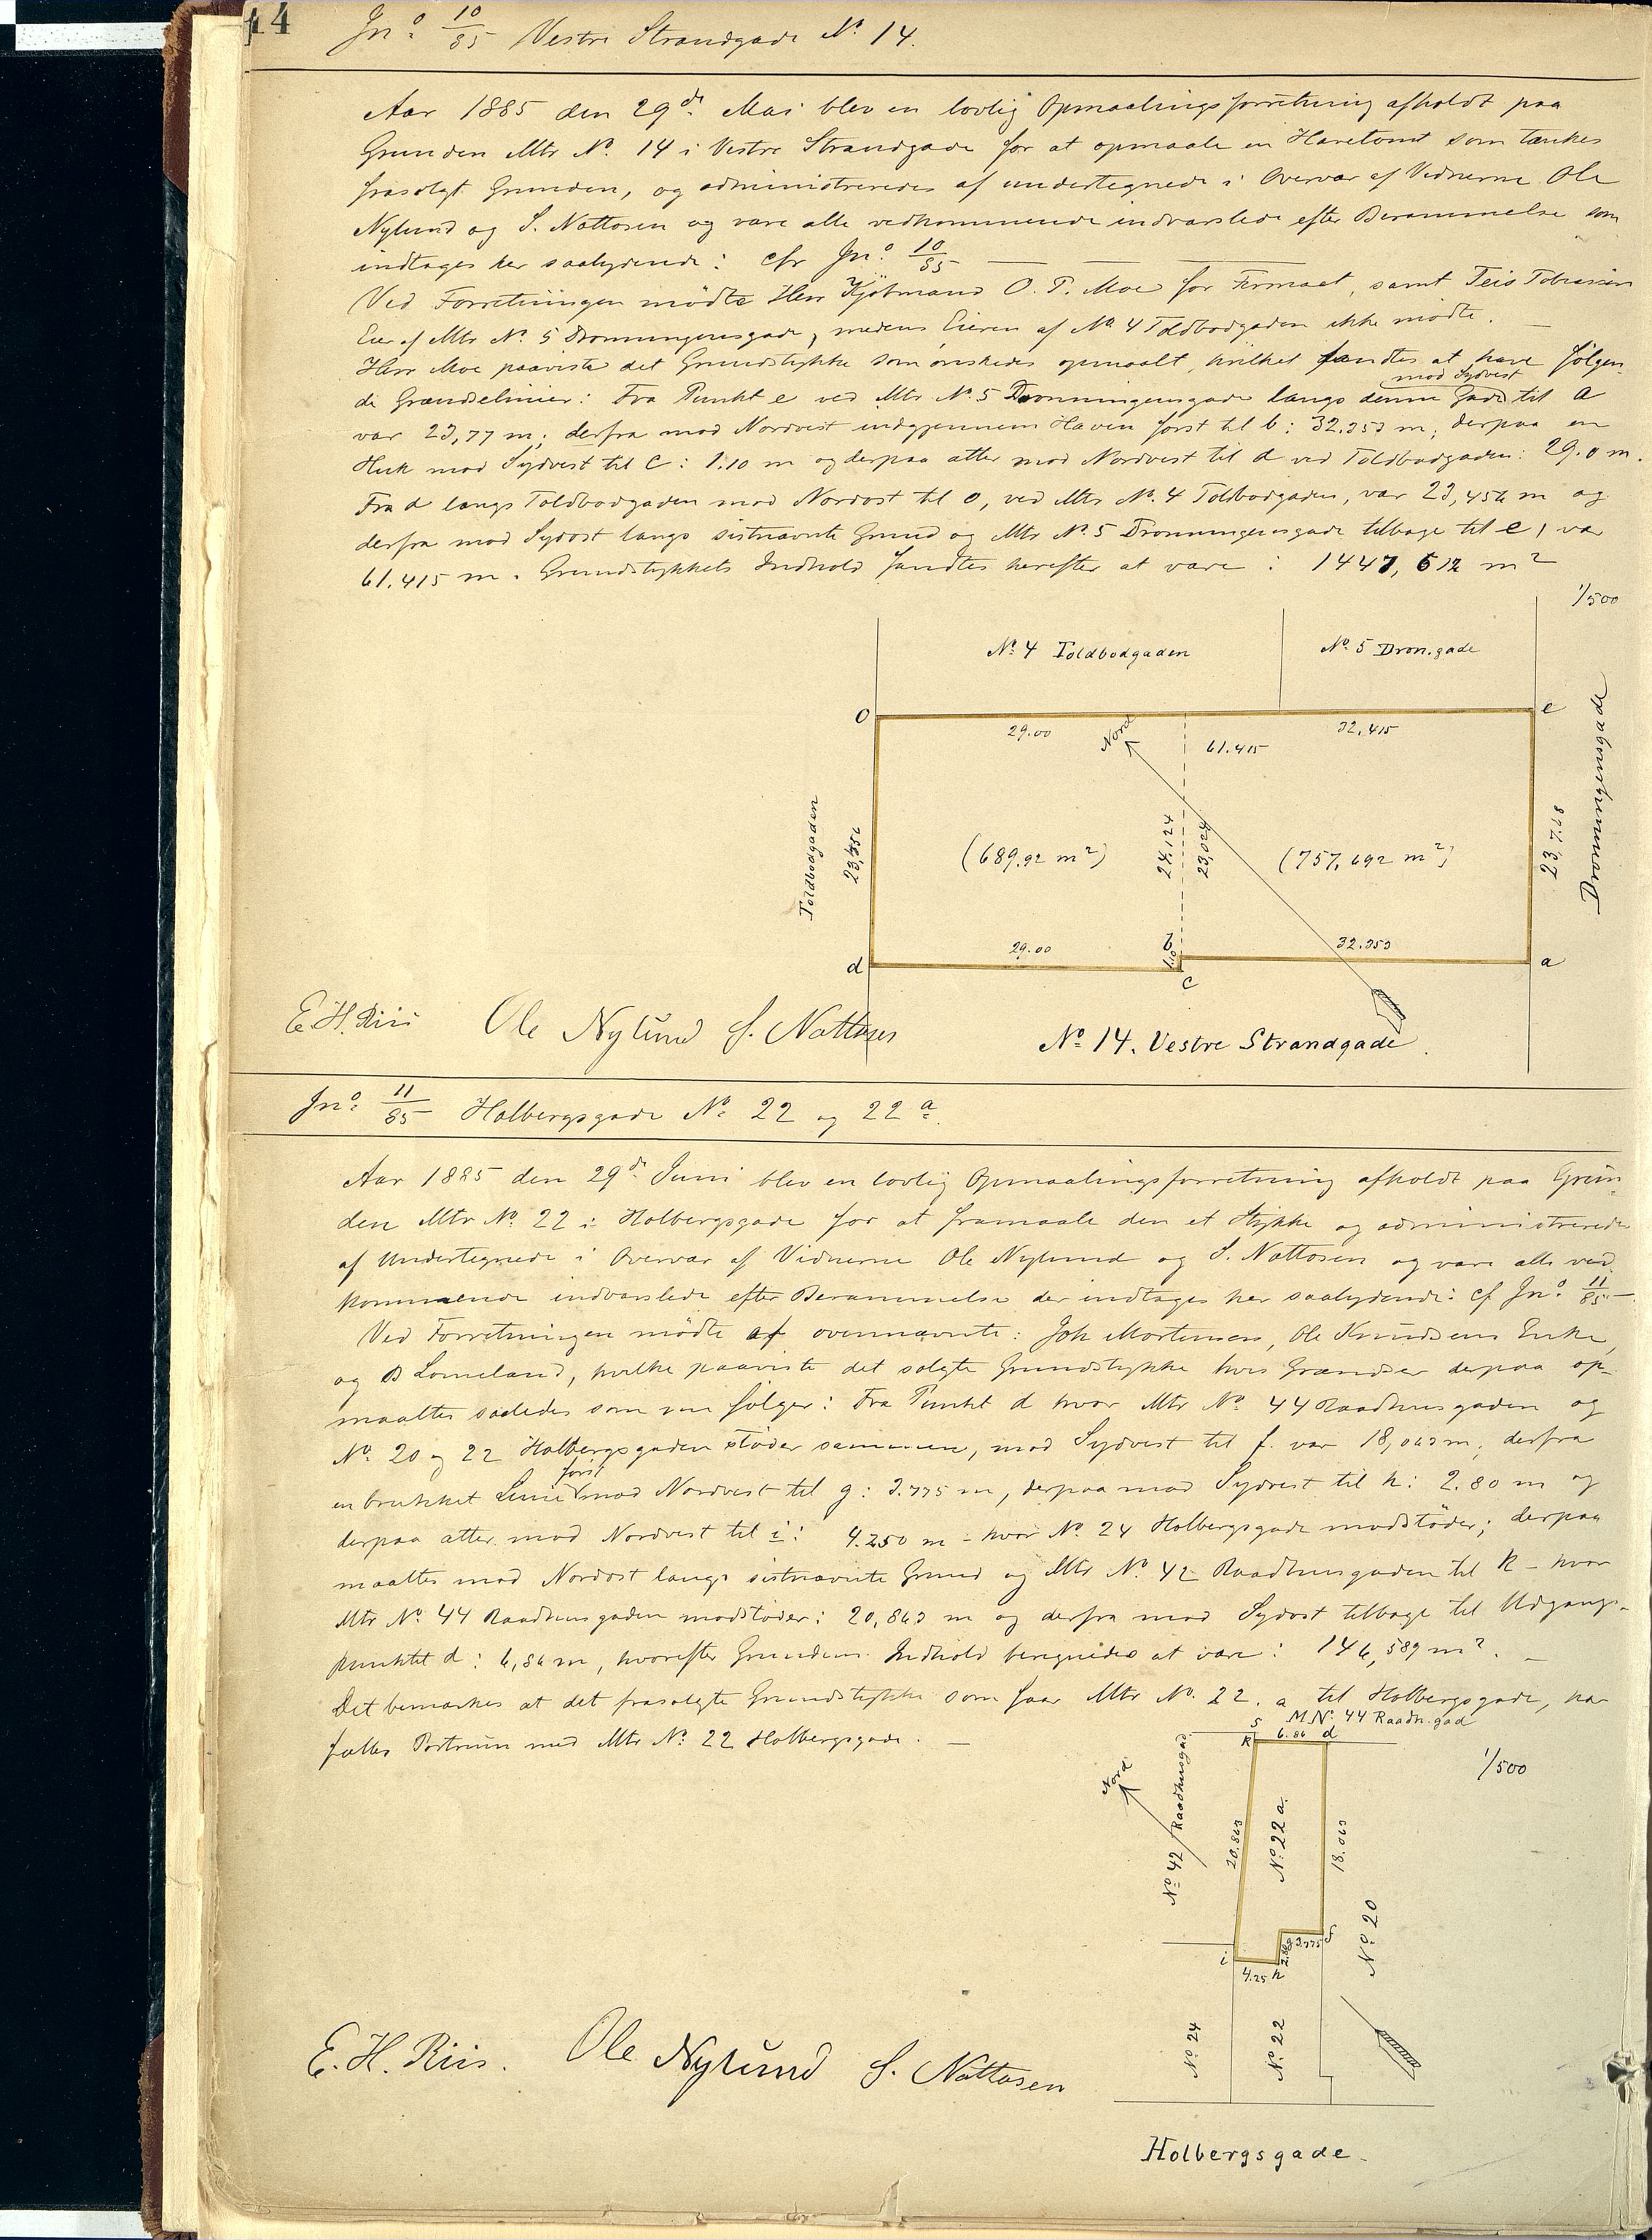 14
Jn.º 10/85 Vestre Strandgade Nº 14.
Aar 1885 den 29de Mai blev en lovlig Opmaalingsforretning afholdt paa
Grunden Mtr Nº 14 i Vestre Strandgade for at opmaale en Havetomt som tænkes
frasolgt Grunden, og administreredes af undertegnede i Overvær af Vidnerne Ole
Nylund og S. Nottosen og vare alle vedkommende indvarslede efter Berammelse som
indtages her saalydende: cfr Jn.º 10/85
Ved Forretningen mödte Herr Kjöbmand O. T. Moe for Firmaet, samt Teis Tobiassen
Eier af Mtr Nº 5 Dronningensgade, medens Eieren af Nº 4 Toldbodgaden ikke mödte. —
Herr Moe paaviste det Grundstykke som önskedes opmaalt, hvilket fandtes at have fölgen-
de Grændselinier: Fra Punkt e ved Mtr Nº 5 Dronningensgade langs denne Gade mod Sydvest til a
var 23,77 m; derfra mod Nordvest indgjennem Haven först til b: 32.353 m; derpaa en
Huk mod Sydvest til c: 1.10 m og derpaa atter mod Nordvest til d ved Toldbodgaden: 29.0 m.
Fra d langs Toldbodgaden mod Nordost til o, ved Mtr Nº 4 Toldbodgaden, var 23,456 m og
derfra mod Sydost langs sistnævnte Grund og Mtr Nº 5 Dronningensgade tilbage til e, var
61.415 m. Grundstykkets Indhold fandtes herefter at være: 1447,612 m²
1/500
Nº 4 Toldbodgaden
Nº 5 Dron.gade
o
e
29.00
Nord
61.415
32,415
Toldbodgaden
23,456
(689.92 m²)
24.124
23,024
(757,692 m²)
Dronningensgade
d
29.00
b
1.10
c
32.353
a
E. H. Riis Ole Nylund S. Nottosen
Nº 14. Vestre Strandgade.
Jnº 11/85 Holbergsgade Nº 22 og 22 a.
Aar 1885 den 29de Juni blev en lovlig Opmaalingsforretning afholdt paa Grun-
den Mtr Nº 22 i Holbergsgade for at framaale den et Stykke og administreredes
af Undertegnede i Overvær af Vidnerne Ole Nylund og S. Nottosen og vare alle ved-
kommende indvarslede efter Berammelse der indtages her saalydende: cf Jn.º 11/85 —
Ved Forretningen mödte af ovennævnte: Joh Mortensen, Ole Knudsens Enke,
og B Lomeland, hvilke paaviste det solgte Grundstykke hvis Grændser derpaa op-
maaltes saaledes som nu fölger: Fra Punkt d hvor Mtr Nº 44 Raadhusgaden og
Nº 20 og 22 Holbergsgaden stöder sammen, mod Sydvest til f. var 18,063 m; derfra
en brukket Linie först mod Nordvest til g: 3.775 m, derpaa mod Sydvest til h: 2.80 m og
derpaa atter mod Nordvest til i: 4.250 m - hvor Nº 24 Holbergsgade modstöder; derpaa
maaltes mod Nordost langs sistnævnte Grund og Mtr Nº 42 Raadhusgaden til k - hvor
Mtr Nº 44 Raadhusgaden modstöder: 20,863 m og derfra mod Sydost tilbage til Udgangs-
punktet d: 6,86 m, hvorefter Grundens Indhold beregnedes at være: 146,589 m². —
Det bemærkes at det frasolgte Grundstykke som faar Mtr Nº 22. a til Holbergsgade, har
fælles Portrum med Mtr Nº 22 Holbergsgade. —
M.Nº 44 Raadh.gad
S
k
6.86
d
1/500
Nord
Nº 42 Raadhusgad
20.863
Nº 22 a.
18.063
Nº 20
i
4.25
h
2.80
g
3.775
f
Nº 24
Nº 22
E. H. Riis. Ole Nylund S. Nottosen
Holbergsgade.